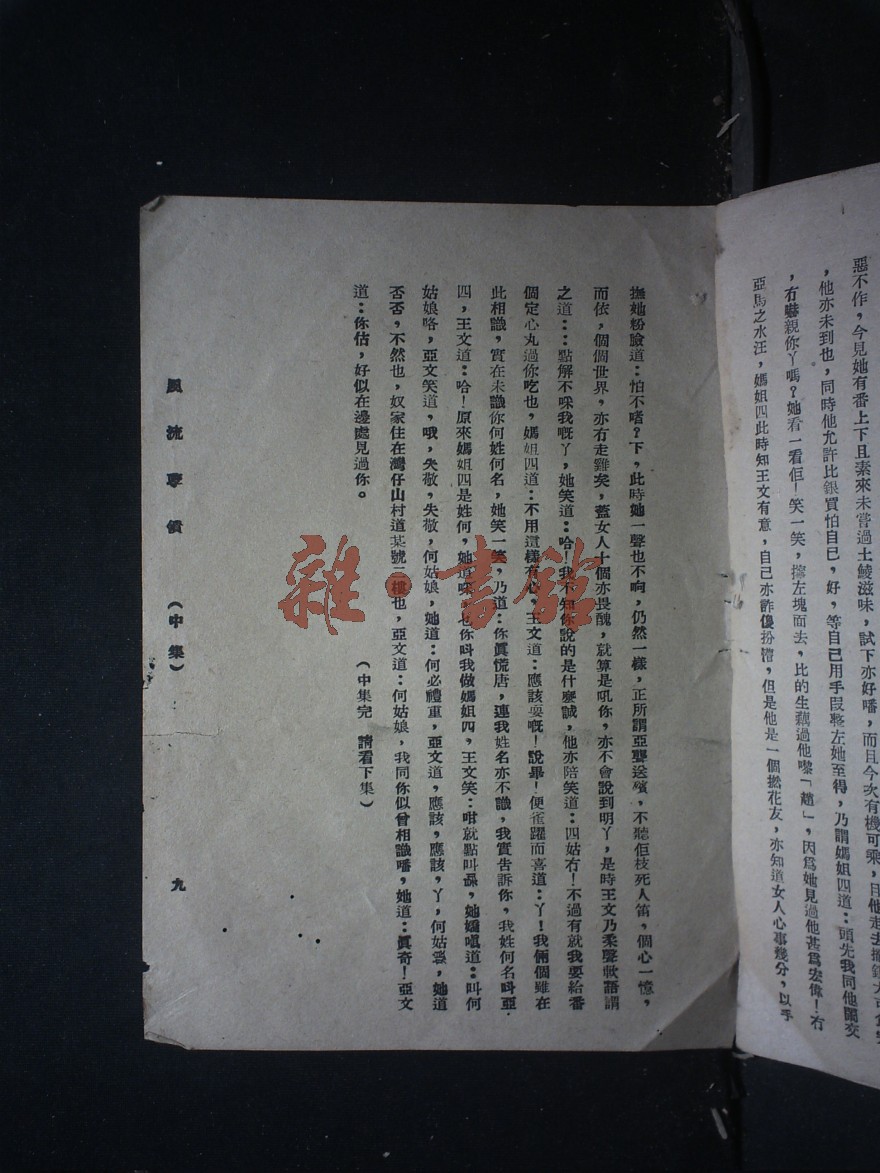 惡不作，今見她有番上下且素來未嘗過土鯪滋味，試下亦好噃，而且今次有機可乘，
，他亦未到也，同時他允許比銀買怕自己，好，等自己用手段整左她至得，乃謂媽姐四道：頭先我同他鬧交
，冇嚇親你丫嗎？她看一看佢！笑一笑，擰左塊面去，比的生藕過他嚟「趙」，因爲她見過他甚爲宏偉！冇
亞馬之水汪，媽姐四此時知王文有意，自己亦詐傻扮懵，但是他是一個撚花友，亦知道女人心事幾分，以手
撫她粉臉道：怕不嗜？下，此時她一聲也不响，仍然一樣，正所謂亞聾送殯，不聽佢枝死人笛，個心一憶，
而依，個個世界，亦冇走雞矣，蓋女人十個亦畏醜，就算是吼你，亦不會說到明丫，是時王文乃柔聲軟語謂
之道：：點解不咪我嘅丫，她笑道：哈！我不知你說的是什麼誠，他亦陪笑道：四姑冇！不過有就我要給番
個定心丸過你吃也，媽姐四道：不用這樣有心，王文道：應該耍嘅！說畢！便雀躍而喜道：丫！我倆個雖在
此相識，實在未識你何姓何名，她笑一笑，乃道：你眞慌唐，連我姓名亦不識，我實告訴你，我姓何名叫亞
四，王文道：哈！原來媽姐四是姓何，她道咪，也你叫我做媽姐四，王文笑：咁就點叫㗎，她嬌嗔道：叫何
姑娘咯，亞文笑道，哦，失敬，失敬，何姑娘，她道：何必禮重，亞文道，應該，應該，丫，何姑娘，她道
否否，不然也，奴家住在灣仔山村道某號三樓也，亞文道：何姑娘，我同你似曾相識噃，她道：眞奇！亞文
道：你估，好似在邊處見過你。
（中集完　請看下集）
風流　領　（中集）　九
雜·書館